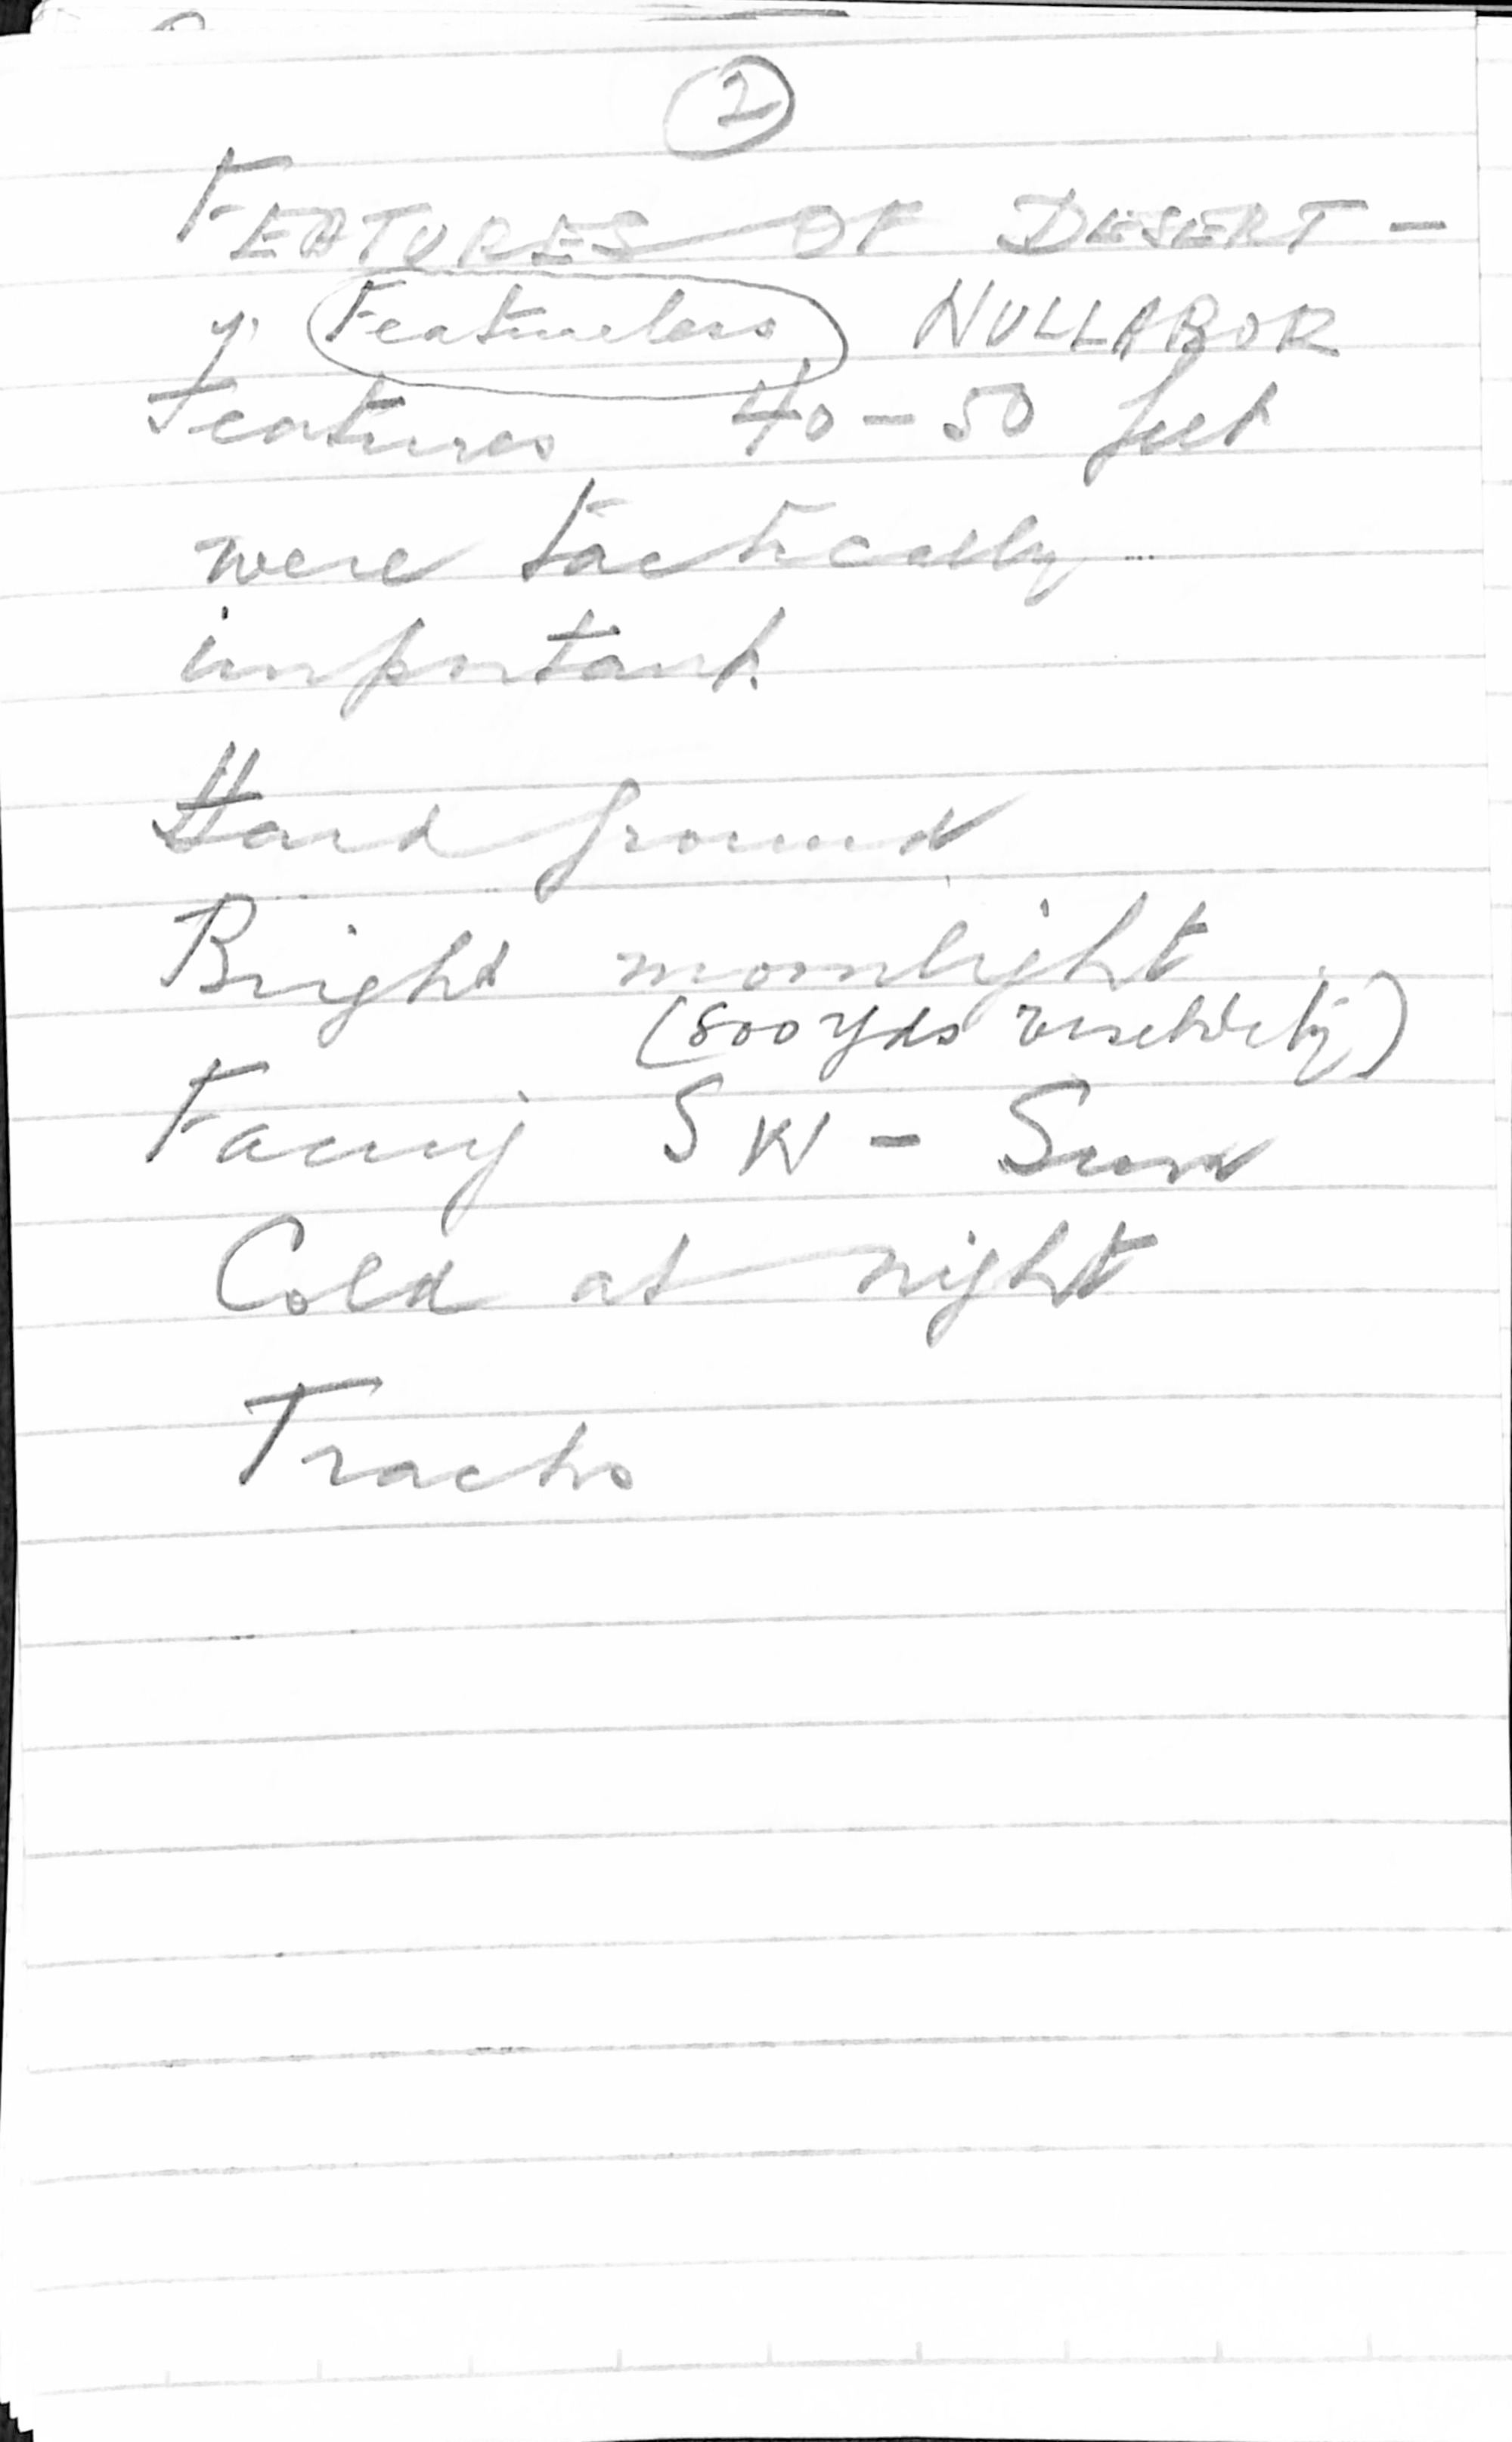 2
FEATURES OF DESERT -
Featureless NULLABOR
Features 40-50 feet
were tactically
important
Hard ground
Bright moonlight
(800 yds visibility)
Facing SW - Sun
Cold at night
Tracks